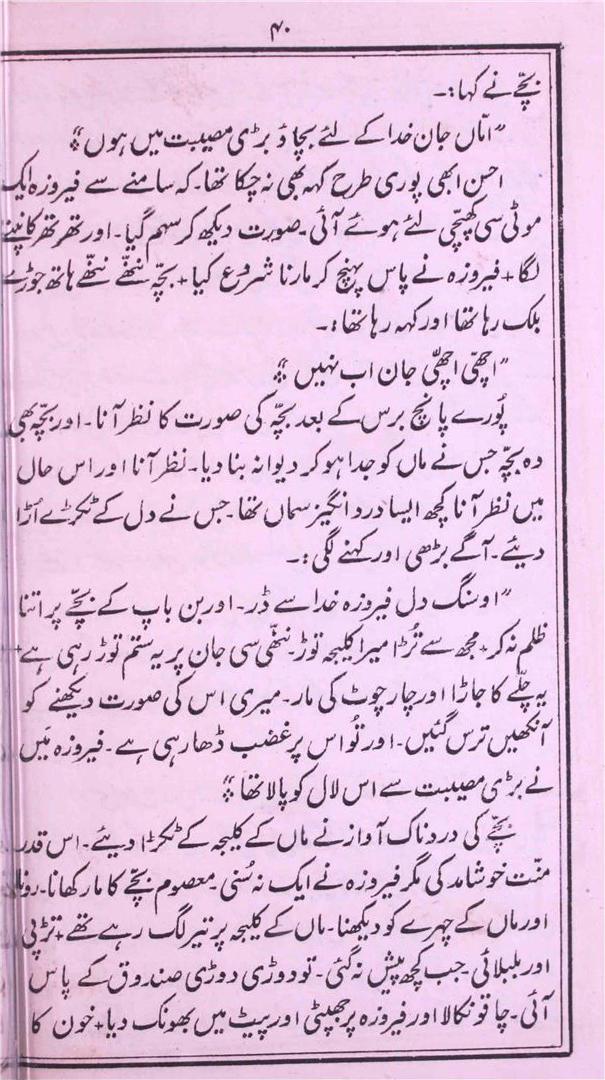 ۴۰
بچّے نے کہا:۔
"امّاں جان خدا کے لئے بچاؤ بڑی مصیبت میں ہوں"
احسن ابھی پوری طرح کہہ بھی نہ چکا تھا۔ کہ سامنے سے فیروزہ ایک
موٹی سی کھپچّی لئے ہوئے آئی۔ صورت دیکھ کر سہم گیا۔ اور تھر تھر کانپنے
لگا+ فیروزہ نے پاس پہنچ کر مارنا شروع کیا+ بچّہ ننھّے ننھّے ہاتھ جوڑے
بلک رہا تھا اور کہہ رہا تھا:۔
"اچھّی اچھّی جان اب نہیں"
پُورے پانچ برس کے بعد بچّہ کی صورت کا نظر آنا۔ اور بچّہ بھی
وہ بچّہ جس نے ماں کو جدا ہو کر دیوانہ بنا دیا۔ نظر آنا اور اس حال
میں نظر آنا کچھ ایسا درد انگیز سماں تھا۔ جس نے دل کے ٹکڑے اُڑا
دیئے۔ آگے بڑھی اور کہنے لگی:۔
"او سنگ دل فیروزہ خدا سے ڈر۔ اور بن باپ کے بچّے پر اتنا
ظلم نہ کر+ مجھ سے تڑا میرا کلیجہ توڑ۔ ننھّی سی جان پر یہ ستم توڑ رہی ہے+
یہ چلّے کا جاڑا اور چار چوٹ کی مار۔ میری اس کی صورت دیکھنے کو
آنکھیں ترس گئیں۔ اور تُو اس پر غضب ڈھا رہی ہے۔ فیروزہ مَیں
نے بڑی مصیبت سے اس لال کو پالا تھا"
بچّے کی دردناک آواز نے ماں کے کلیجہ کے ٹکڑا دیئے۔ اس قدر
منّت خوشامد کی مگر فیروزہ نے ایک نہ سُنی۔ معصوم بچّے کا مار کھانا۔
اور ماں کے چہرے کو دیکھنا۔ ماں کے کلیجہ پر تیر لگ رہے تھے+ تڑپی
اور بلبلائی۔ جب کچھ پیش نہ گئی۔ تو دوڑی دوڑی صندوق کے پاس
آئی۔ چاقو نکالا اور فیروزہ پر جھپٹی اور پیٹ میں بھونک دیا+ خون کا